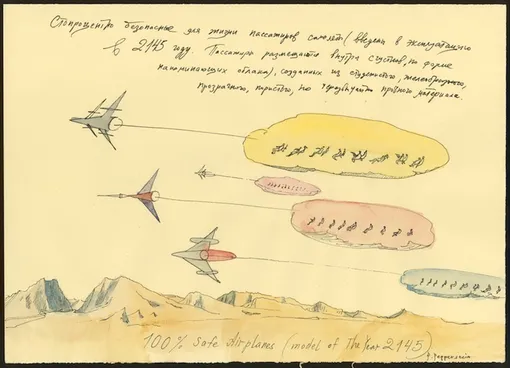 Стопроцентно безопасные для жизни пассажиров самолеты (введены в эксплуатацию
в 2145 году. Пассажиры размещаются внутри сгустков, по форме
напоминающих облака), созданных из студенистого, желеобразного,
прозрачного, пористого, но чрезвычайно прочного материала.
100% Safe Airplanes (model of The Year 2145)
P. Pepperstein